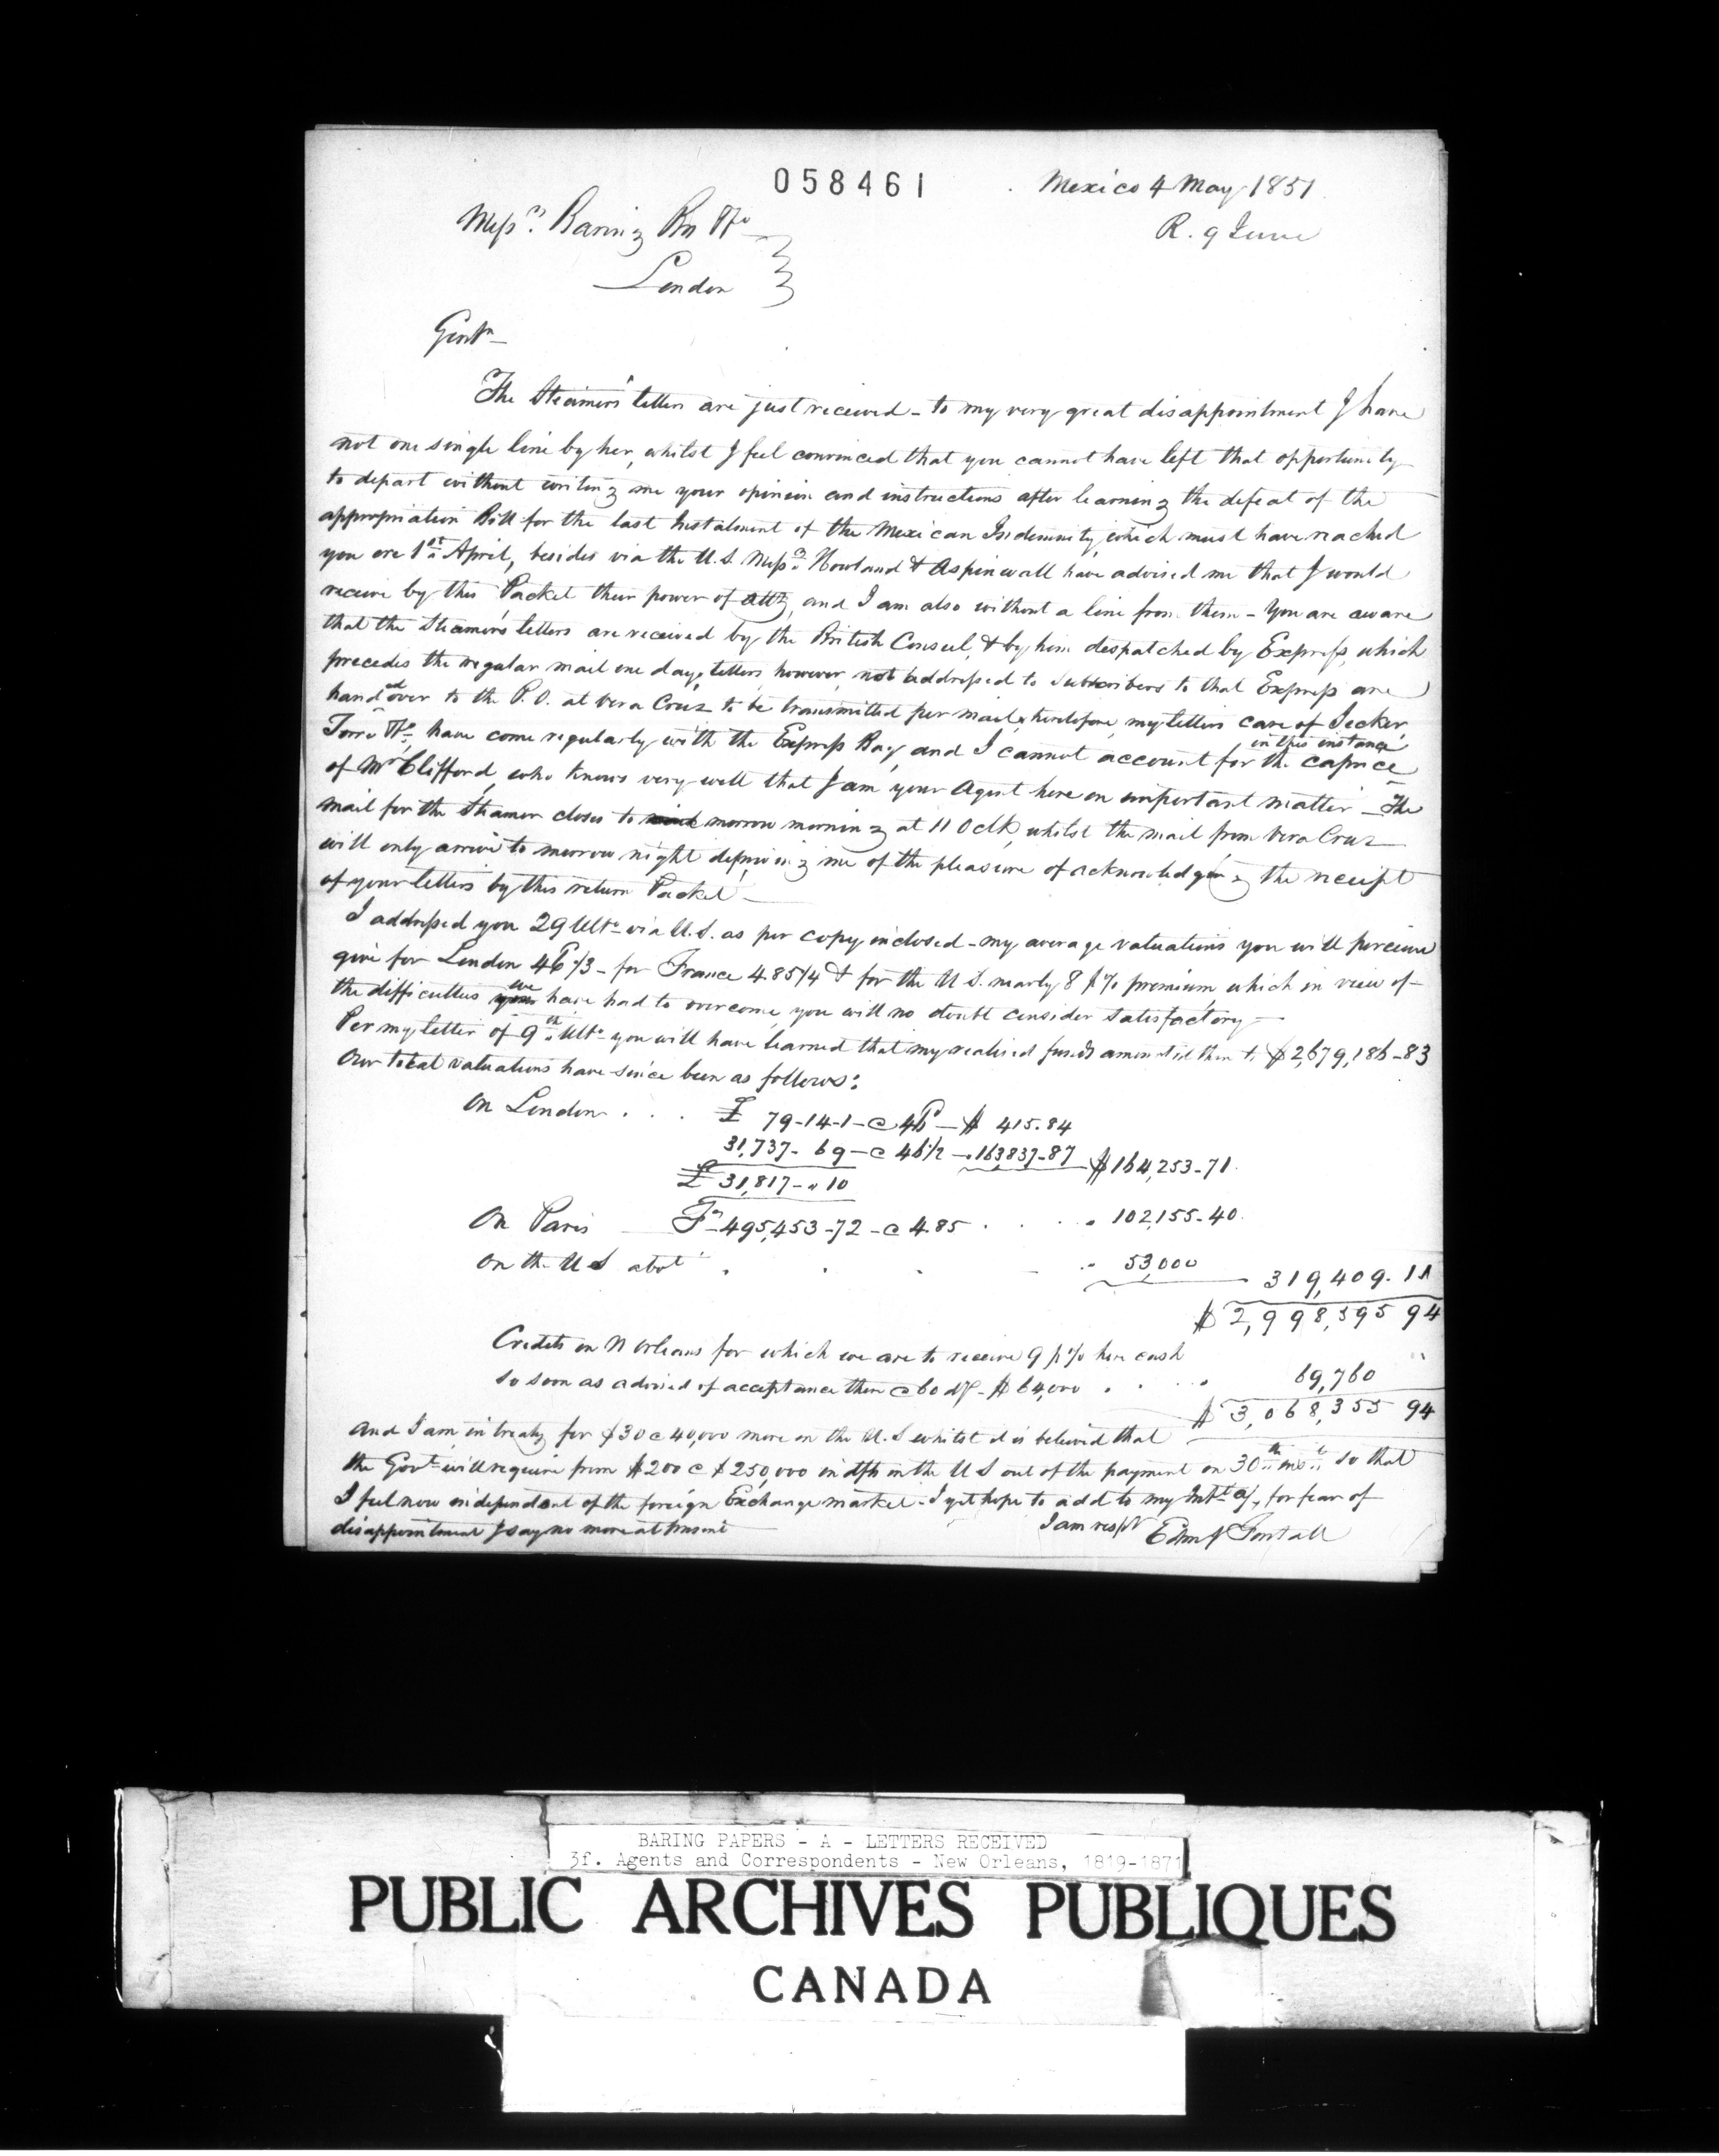 058461
Mexico 4 May 1851
R. 9 June
Messrs. Baring Bro & Co
London
Gentn
The Steamers letters are just received - to my very great disappointment I have
not one single line by her, whilst I feel convinced that you cannot have left that opportunity
to depart without writing me your opinion and instructions after learning the defeat of the
appropriation Bill for the last Instalment of the Mexican Indemnity, which must have reached
you ere 1st April, besides via the U.S. Messrs. Howland & Aspinwall have advised me that I would
receive by this Packet their power of atty, and I am also without a line from them - You are aware
that the Steamers letters are received by the British Consul, & by him despatched by Express, which
precedes the regular mail one day, letters however not addressed to subscribers to that Express are
handed over to the P.O. at Vera Cruz to be transmitted per mail, heretofore my letters care of Jecker
Torre & Co. have come regularly with the Express Bag, and I cannot account for the caprice in this instance
of Mr Clifford, who knows very well that I am your Agent here on important matter - The
mail for the Steamer closes to morrow morning at 11 O clk, whilst the mail from Vera Cruz
will only arrive to morrow night depriving me of the pleasure of acknowledging the receipt
of your letters by this return Packet -
I addressed you 29 Ulto via U.S. as per copy inclosed - my average valuations you will perceive
give for London 46 1/3 - for France 4.85 1/4 & for the U S. nearly 8 p% premium, which in view of
the difficulties we have had to overcome, you will no doubt consider satisfactory -
Per my letter of 9th Ulto you will have learned that my realised funds amounted then to $2,679,186-83
Our total valuations have since been as follows:
On London . . . £ 79-14-1 - @ 46 - $ 415.84
31,737. 6 9 - @ 46 1/2 - 163837-87 $164,253-71
£ 31,817 - " 10
On Paris Fs 495,453-72 - @ 4.85 . . . " 102,155-40
On the U S abot . . . . " 53,000
319,409.11
$ 2,998,595 94
Credits on N Orleans for which we are to receive 9 p% here cash
so soon as advised of acceptance there @ 60 d/s - $64,000 . . . 69,760 "
$ 3,068,355 94
And I am in treaty for $30 @ 40,000 more on the U. S whilst it is believed that
the Govt will require from $200 @ $250,000 in dfts on the U S out of the payment on 30th inst so that
I feel now independent of the foreign Exchange market. I yet hope to add to my Intt a/, for fear of
disappointment I say no more at present
I am resply
BARING PAPERS - A - LETTERS RECEIVED
3f. Agents and Correspondents - New Orleans, 1819-1871
PUBLIC ARCHIVES PUBLIQUES
CANADA